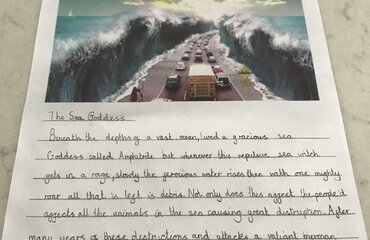 The Sea Goddess
Beneath the depths of a vast ocean, lived a gracious sea
Goddess called Amphitrite but whenever this repulsive sea witch
gets in a rage, slowly the ferocious water rises then with one mighty
roar all that is left is debris. Not only does this affect the people it
affects all the animals in the sea causing great distruption. After
many years of these destructions and attacks a valiant merman